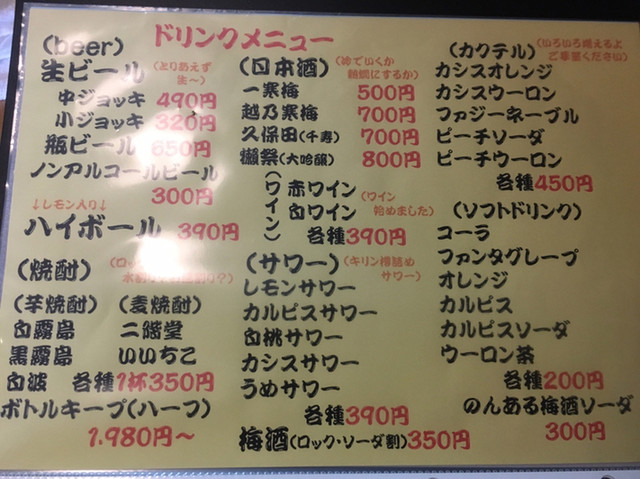 ドリンクメニュー
(beer)
生ビール (とりあえず
生〜)
中ジョッキ 490円
小ジョッキ 320円
瓶ビール 650円
ノンアルコールビール
300円
↓レモン入り↓
ハイボール 390円
(焼酎)
(芋焼酎) (麦焼酎)
白霧島 二階堂
黒霧島 いいちこ
白波 各種1杯350円
ボトルキープ(ハーフ)
1.980円〜
(日本酒) (冷でいくか
熱燗にするか)
一寒梅 500円
越乃寒梅 700円
久保田(千寿) 700円
獺祭(大吟醸) 800円
(ワイン)
赤ワイン
白ワイン
(ワイン
始めました)
各種390円
(サワー) (キリン樽詰め
サワー)
レモンサワー
カルピスサワー
白桃サワー
カシスサワー
うめサワー
各種390円
梅酒(ロック・ソーダ割)350円
(カクテル) (いろいろ揃えるよ
ご要望ください)
カシスオレンジ
カシスウーロン
ファジーネーブル
ピーチソーダ
ピーチウーロン
各種450円
(ソフトドリンク)
コーラ
ファンタグレープ
オレンジ
カルピス
カルピスソーダ
ウーロン茶
各種200円
のんある梅酒ソーダ
300円